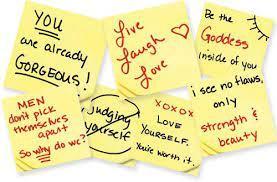 YOU
are already
GORGEOUS!
Live
Laugh
Love
Be the
Goddess
inside of you
MEN
don't pick
themselves
apart
So why do we?
Judging
yourself
XOXOX
LOVE
YOURSELF.
You're worth it.
i see no flaws,
only
strength &
beauty